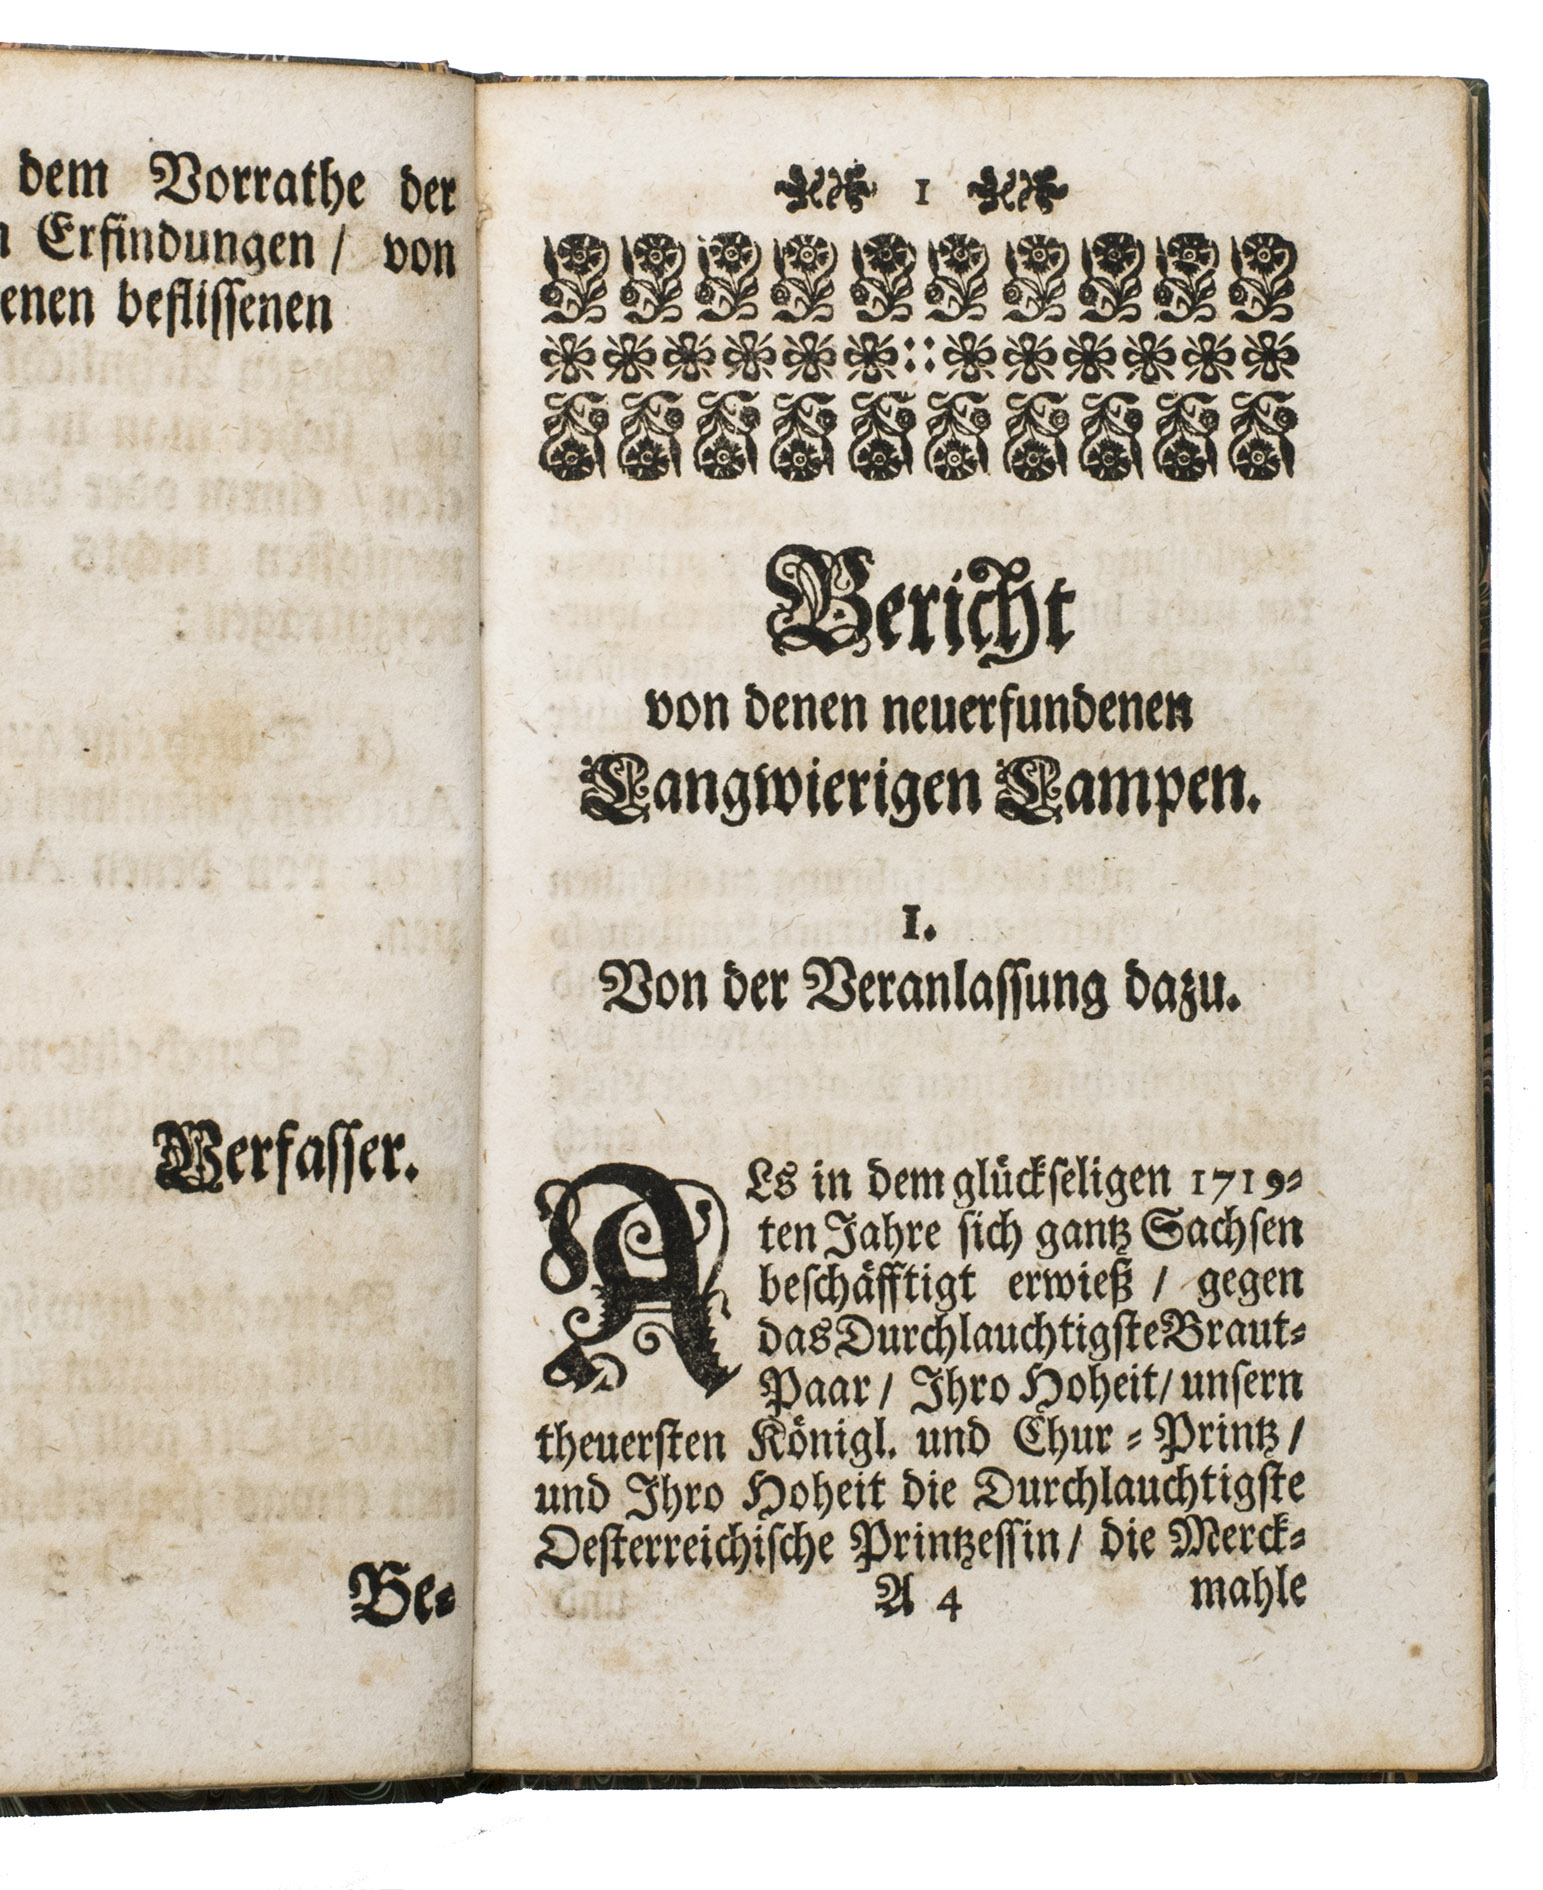 dem Vorrathe der
Erfindungen / von
enen beflissenen
Verfasser.
Be-
1
Bericht
von denen neuerfundenen
Langwierigen Lampen.
I.
Von der Veranlassung dazu.
ALs in dem glückseligen 1719-
ten Jahre sich gantz Sachsen
beschäfftigt erwieß / gegen
das Durchlauchtigste Braut-
Paar / Ihro Hoheit / unsern
theuersten Königl. und Chur-Printz /
und Ihro Hoheit die Durchlauchtigste
Oesterreichische Printzessin / die Merck-
A 4 mahle